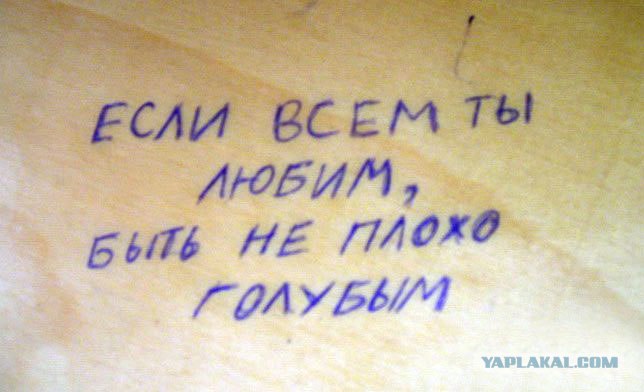 ЕСЛИ ВСЕМ ТЫ
ЛЮБИМ,
БЫТЬ НЕ ПЛОХО
ГОЛУБЫМ
YAPLAKAL.COM